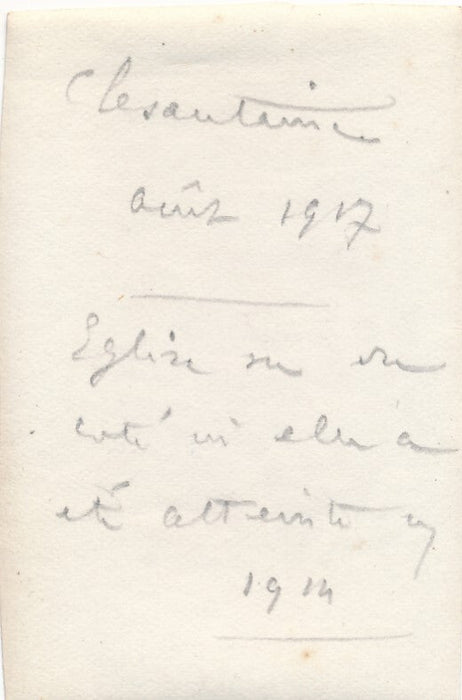 Clesantaine
août 1917
Eglise vue du
coté où elle a
été atteinte en
1914